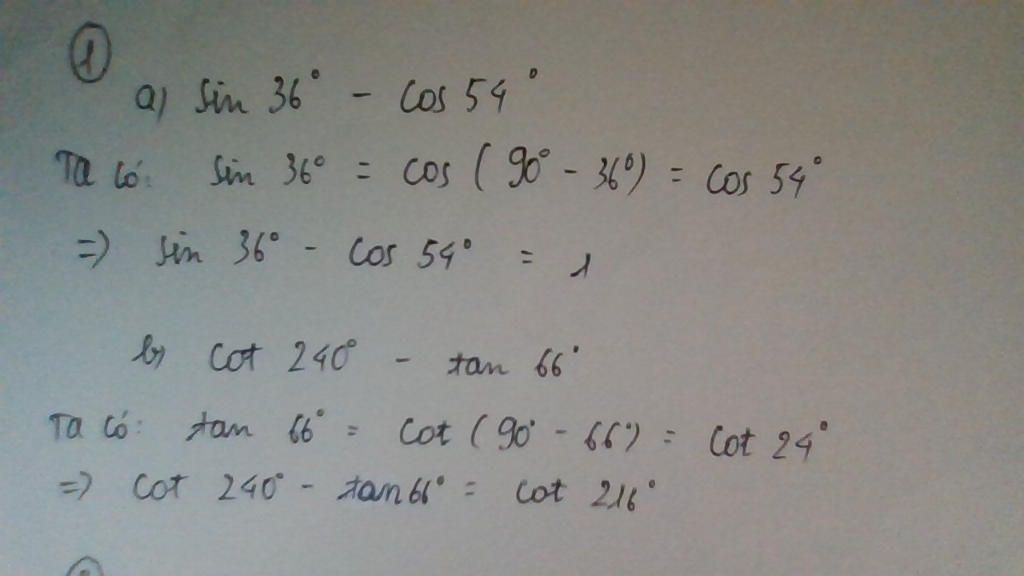 1
a) sin 36° - cos 54°
Ta có: sin 36° = cos (90° - 36°) = cos 54°
=> sin 36° - cos 54° = 1
b) cot 240° - tan 66°
Ta có: tan 66° = cot (90° - 66°) = cot 24°
=> cot 240° - tan 66° = cot 216°